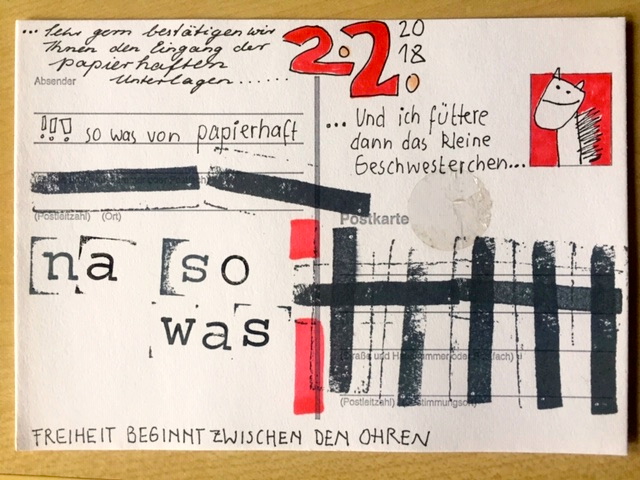 ... Sehr gern bestätigen wir
Ihnen den Eingang der
papierhaften
Unterlagen......
Absender
!!! so was von papierhaft
(Postleitzahl) (Ort)
na so
was
FREIHEIT BEGINNT ZWISCHEN DEN OHREN
2.2. 20
18
... Und ich füttere
dann das kleine
Geschwesterchen...
Postkarte
(Straße und Hausnummer oder Postfach)
(Postleitzahl) (Bestimmungsort)